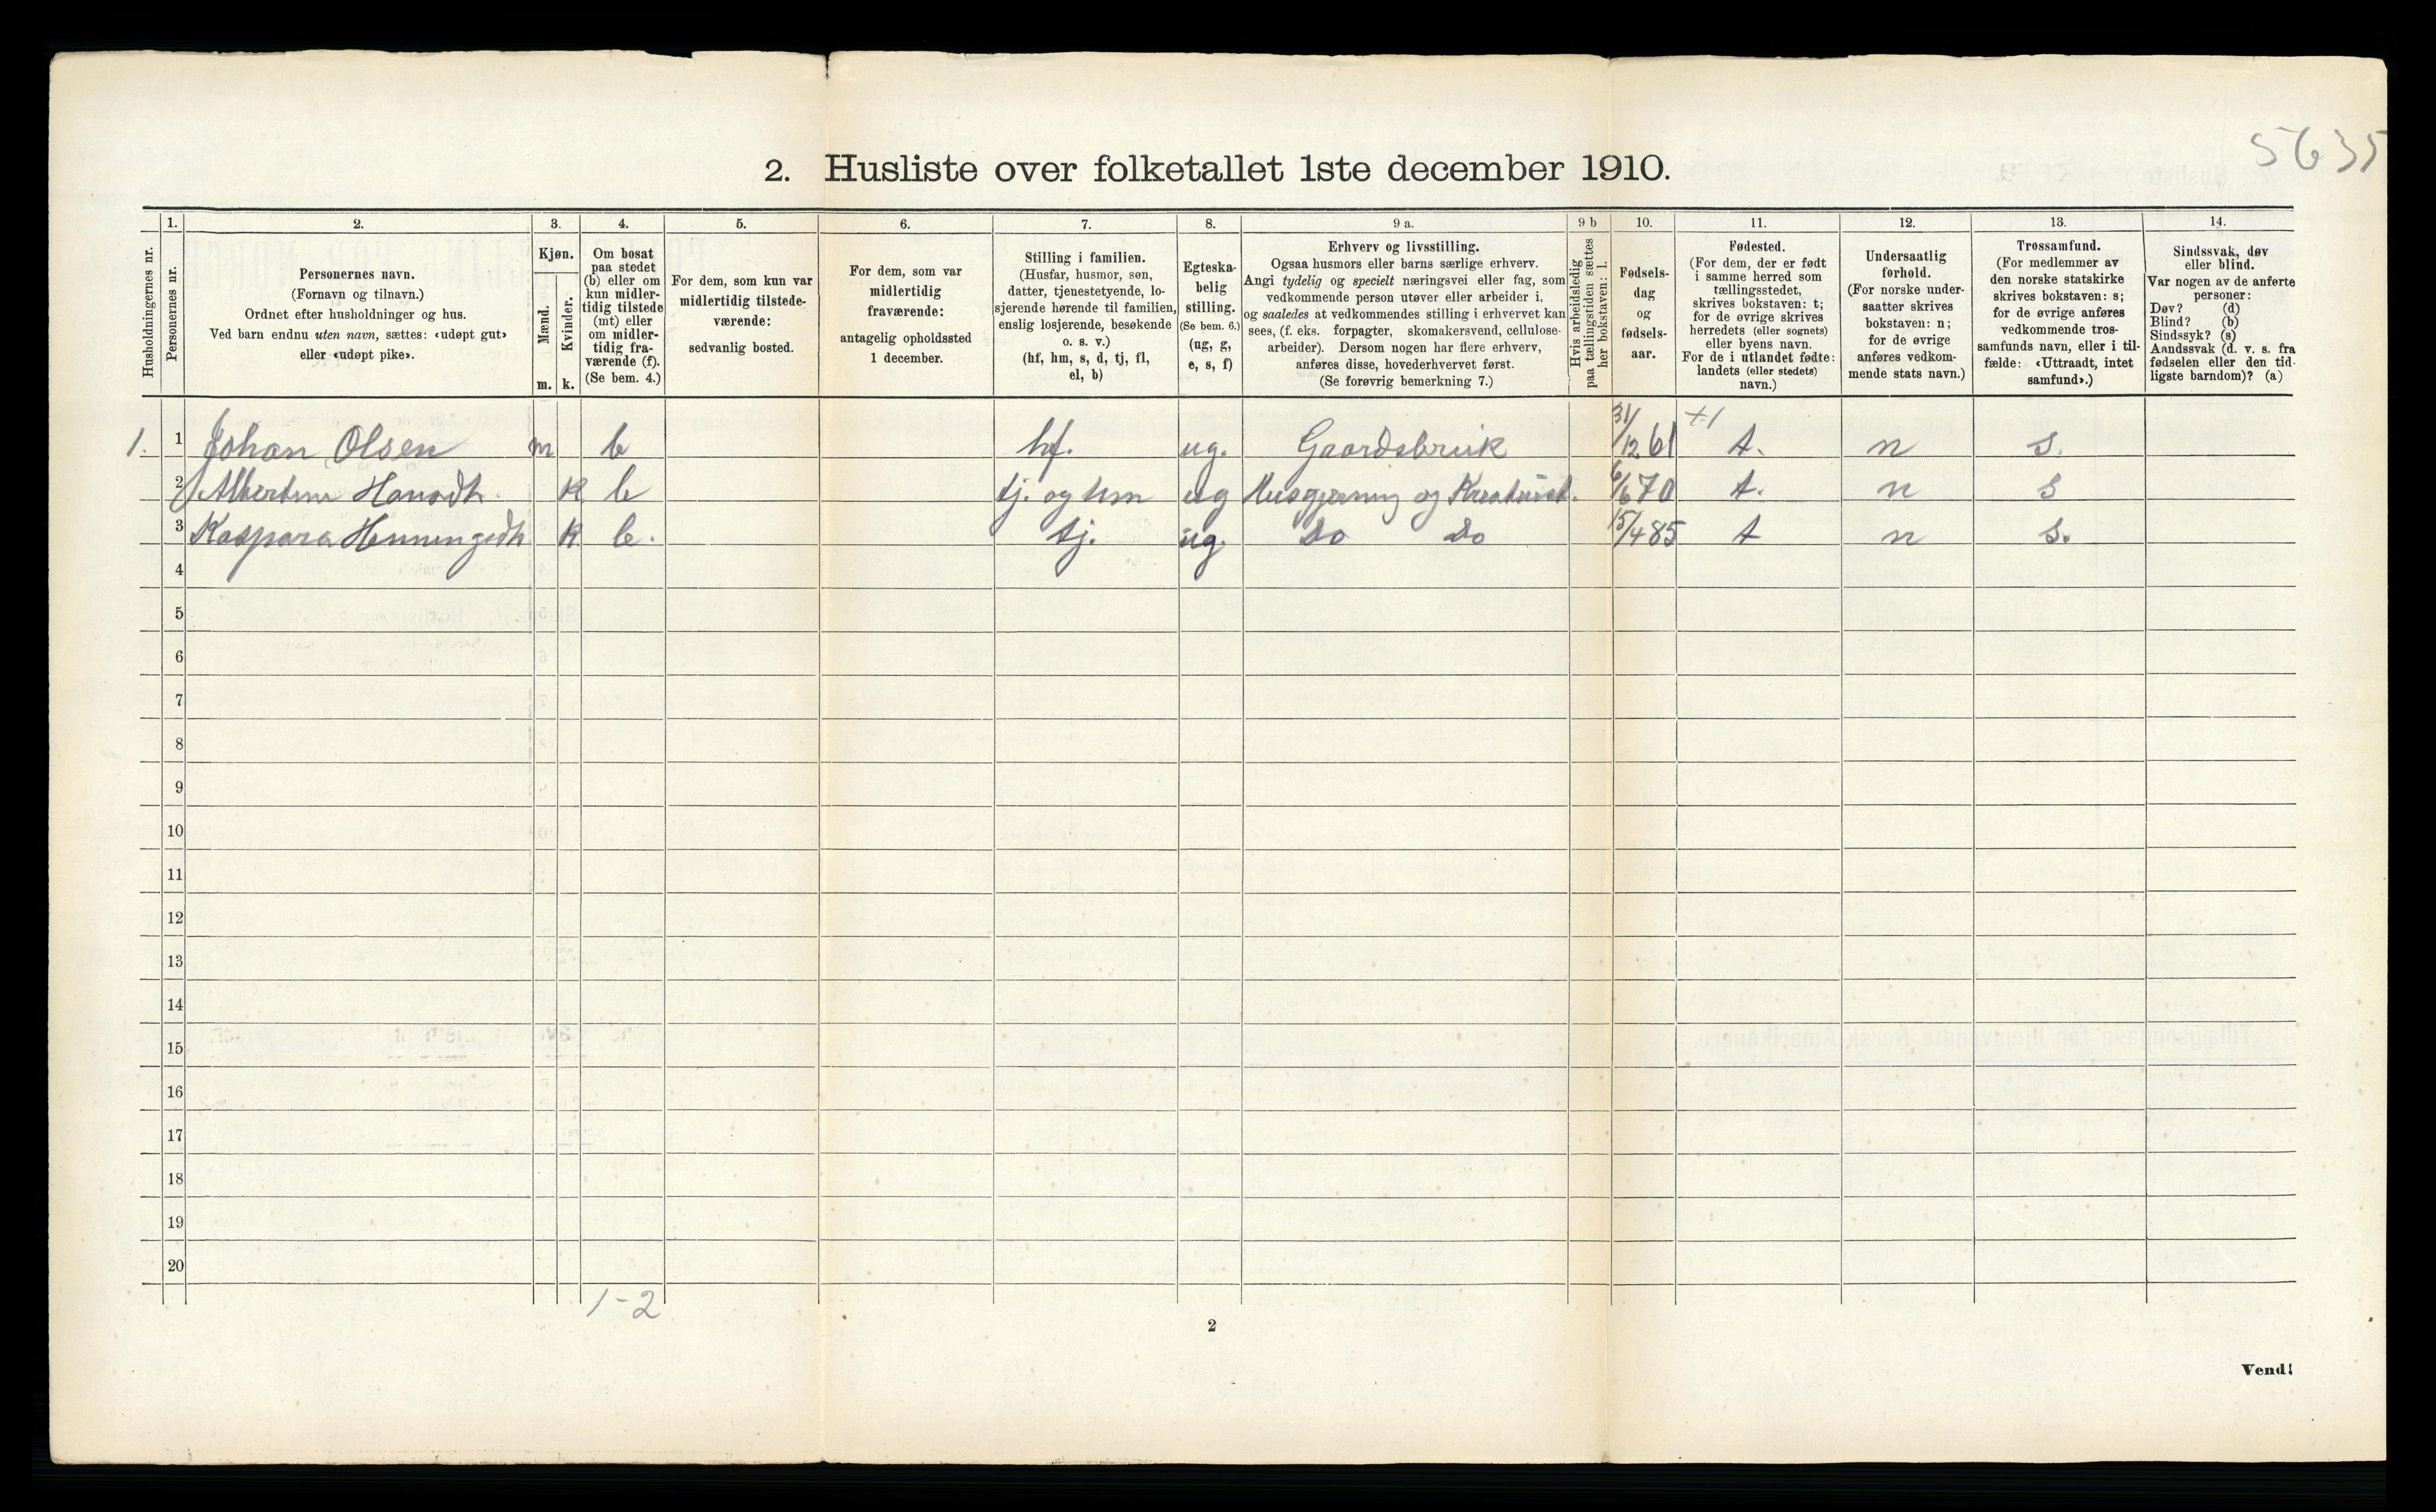 5635
2. Husliste over folketallet 1ste december 1910.
Husholdningernes nr.
1.
Personernes nr.
2.
Personernes navn.
(Fornavn og tilnavn.)
Ordnet efter husholdninger og hus.
Ved barn endnu uten navn, sættes: «udøpt gut»
eller «udøpt pike».
3.
Kjøn.
Mænd.
m.
Kvinder.
k.
4.
Om bosat
paa stedet
(b) eller om
kun midler-
tidig tilstede
(mt) eller
om midler-
tidig fra-
værende (f).
(Se bem. 4.)
5.
For dem, som kun var
midlertidig tilstede-
værende:
sedvanlig bosted.
6.
For dem, som var
midlertidig
fraværende:
antagelig opholdssted
1 december.
7.
Stilling i familien.
(Husfar, husmor, søn,
datter, tjenestetyende, lo-
sjerende hørende til familien,
enslig losjerende, besøkende
o. s. v.)
(hf, hm, s, d, tj, fl,
el, b)
8.
Egteska-
belig
stilling.
(Se bem. 6.)
(ug, g,
e, s, f)
9 a.
Erhverv og livsstilling.
Ogsaa husmors eller barns særlige erhverv.
Angi tydelig og specielt næringsvei eller fag, som
vedkommende person utøver eller arbeider i,
og saaledes at vedkommendes stilling i erhvervet kan
sees, (f. eks. forpagter, skomakersvend, cellulose-
arbeider). Dersom nogen har flere erhverv,
anføres disse, hovederhvervet først.
(Se forøvrig bemerkning 7.)
9 b
Hvis arbeidsledig
paa tællingstiden sættes
her bokstaven: l.
10.
Fødsels-
dag
og
fødsels-
aar.
11.
Fødested.
(For dem, der er født
i samme herred som
tællingsstedet,
skrives bokstaven: t;
for de øvrige skrives
herredets (eller sognets)
eller byens navn.
For de i utlandet fødte:
landets (eller stedets)
navn.)
12.
Undersaatlig
forhold.
(For norske under-
saatter skrives
bokstaven: n;
for de øvrige
anføres vedkom-
mende stats navn.)
13.
Trossamfund.
(For medlemmer av
den norske statskirke
skrives bokstaven: s;
for de øvrige anføres
vedkommende tros-
samfunds navn, eller i til-
fælde: «Uttraadt, intet
samfund».)
14.
Sindssvak, døv
eller blind.
Var nogen av de anførte
personer:
Døv? (d)
Blind? (b)
Sindssyk? (s)
Aandssvak (d. v. s. fra
fødselen eller den tid-
ligste barndom)? (a)
1. 1 Johan Olsen m b hf. ug. Gaardsbruk 31/12 61 t. n s.
2 k b tj. og hm ug Husgjerning og 6/6 70 t. n s
3 Kaspara k b. tj. ug. Do Do 15/4 85 t n s.
4
5
6
7
8
9
10
11
12
13
14
15
16
17
18
19
20
1-2
2
Vend!